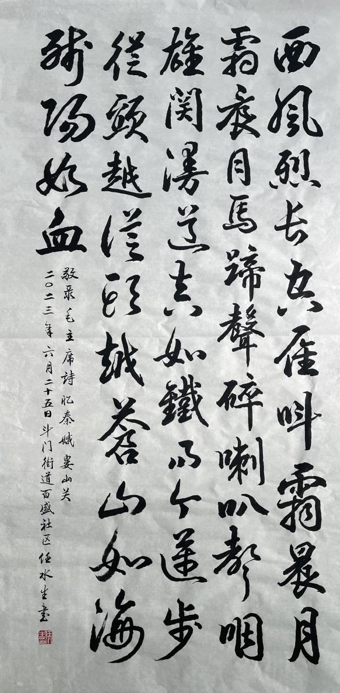 西風烈长空雁叫霜晨月
霜晨月馬蹄聲碎喇叭聲咽
雄関漫道真如鐵而今邁步
從頭越從頭越蒼山如海
殘陽如血
敬录毛主席詩忆秦娥婁山关
二〇二三年六月二十五日斗门街道百盛社区任水生书